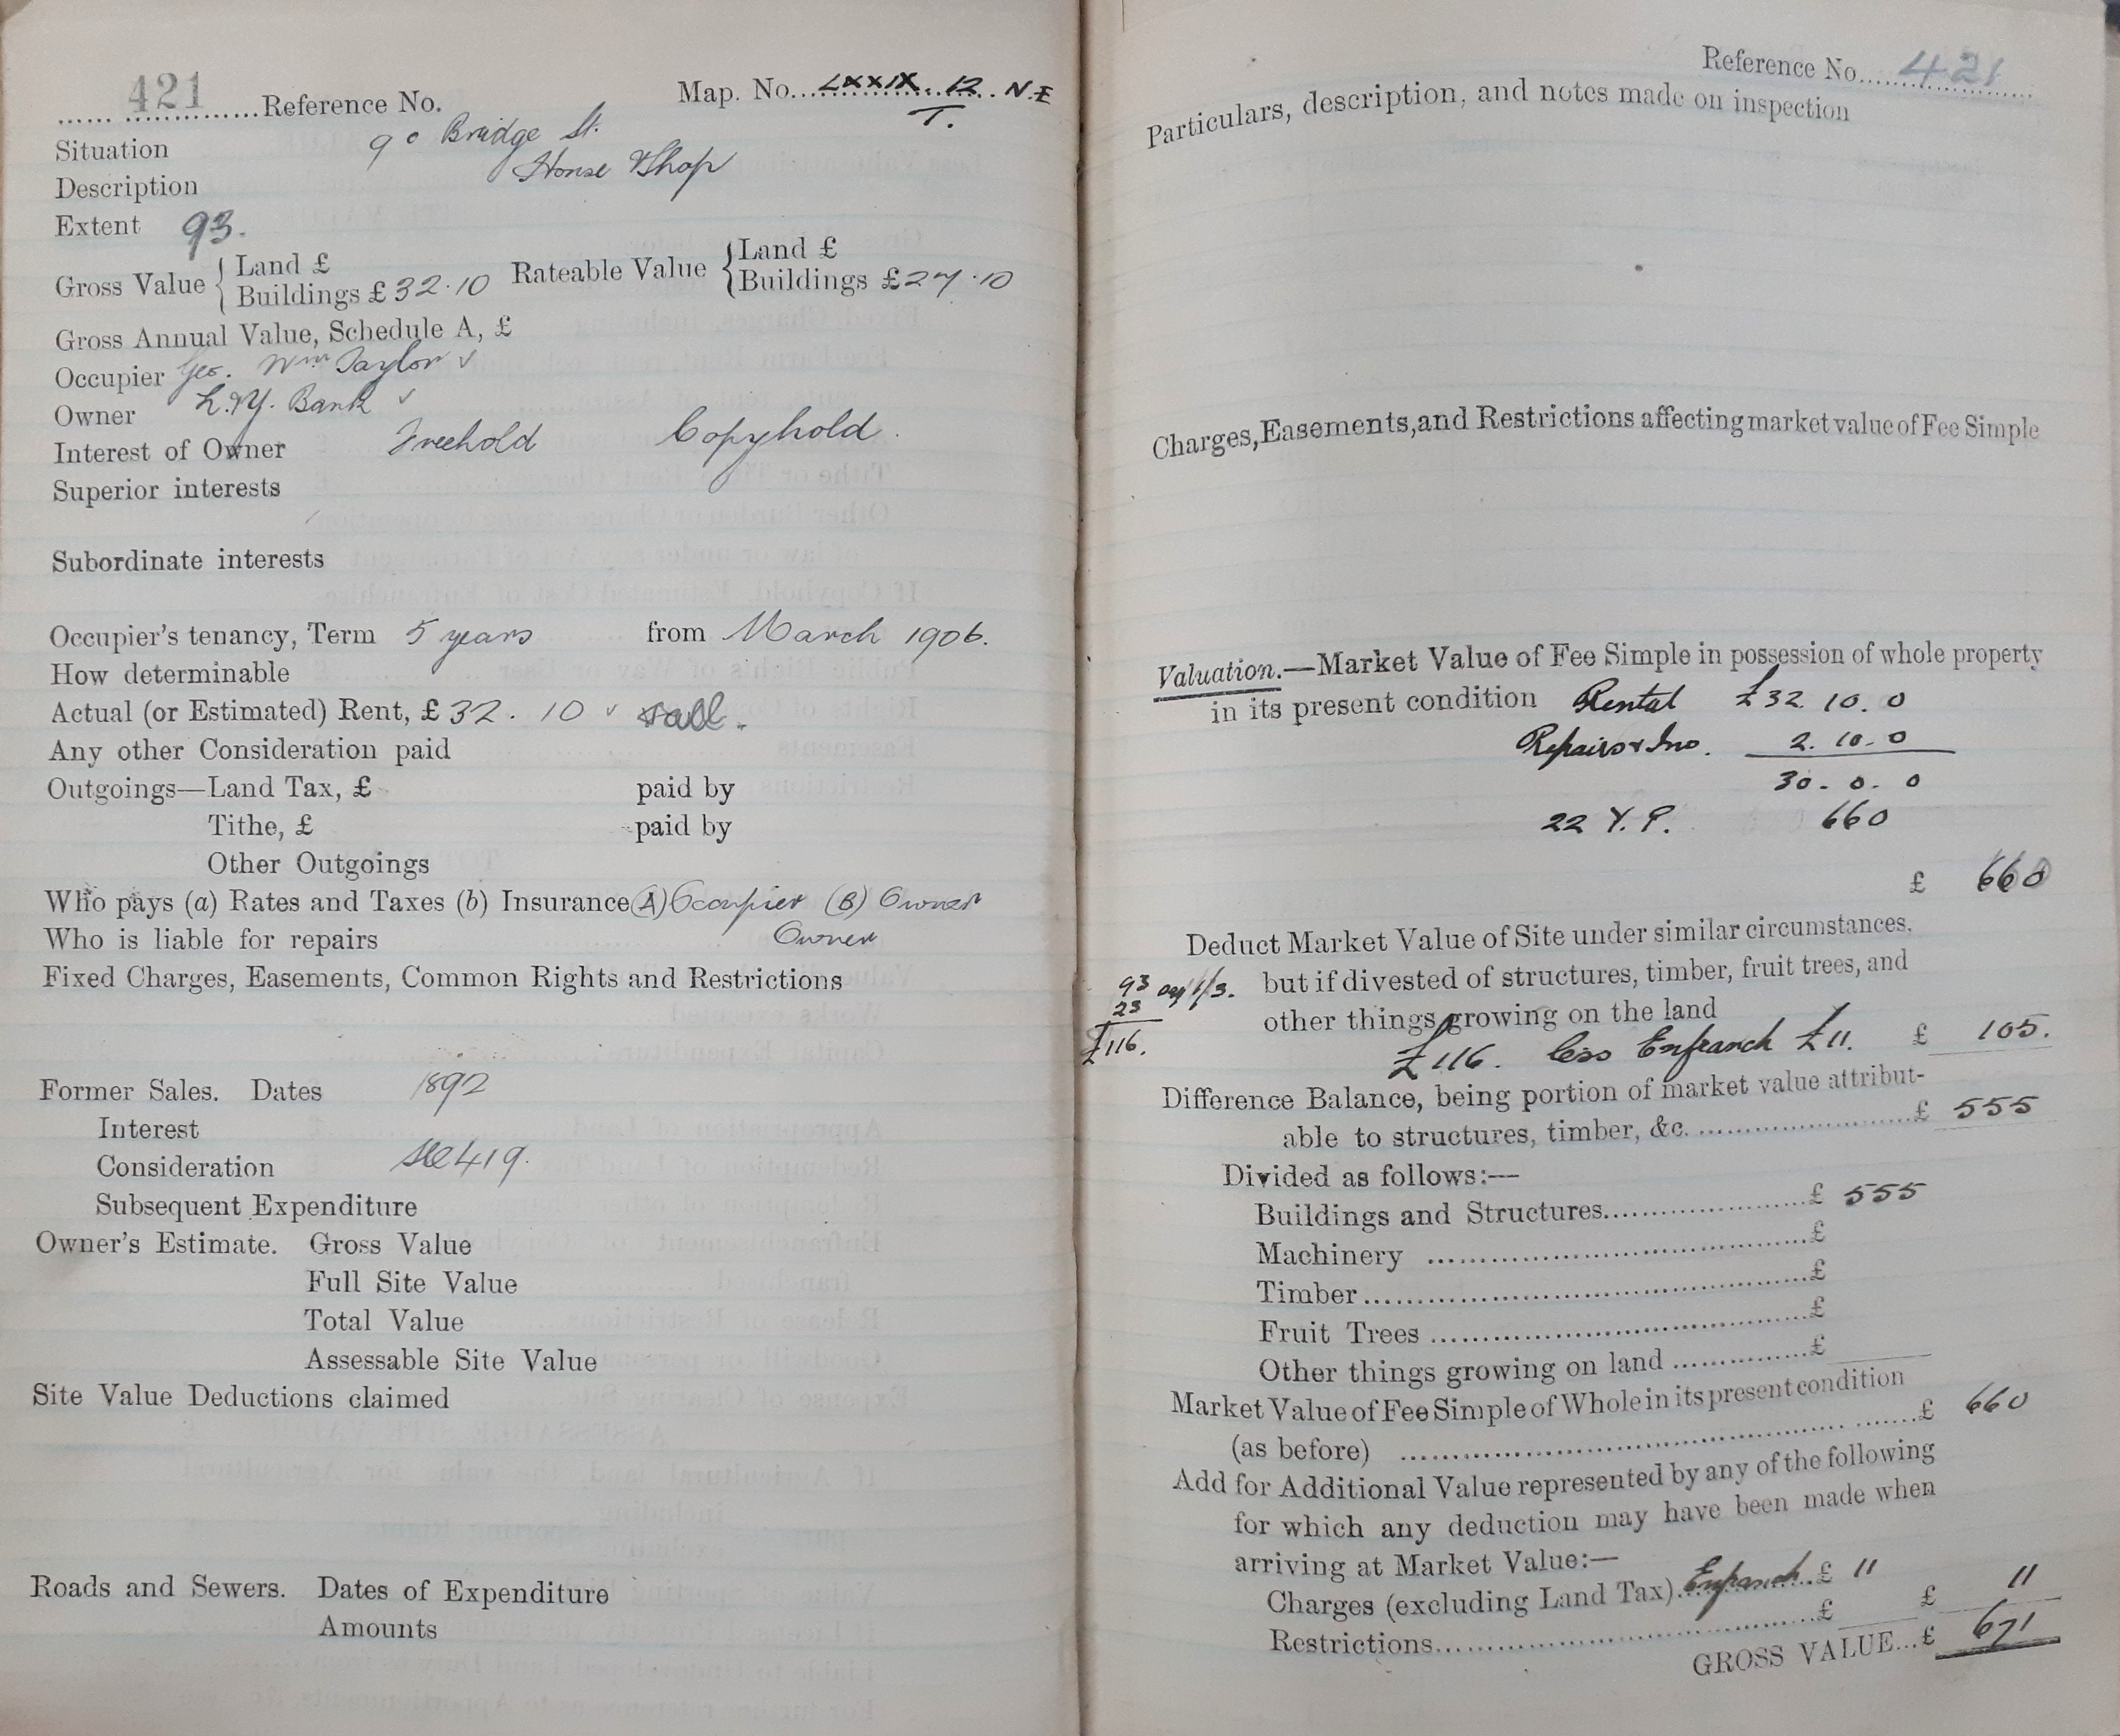 421 Reference No. Map. No. LXXIX. 12. N.E
T.
Situation 90 Bridge St.
Description House & Shop
Extent 93.
Gross Value { Land £ Rateable Value { Land £
Buildings £ 32.10 Buildings £ 27.10
Gross Annual Value, Schedule A, £
Occupier Geo. Wm Taylor ✓
Owner L.&Y. Bank ✓
Interest of Owner Freehold Copyhold.
Superior interests
Subordinate interests
Occupier's tenancy, Term 5 years from March 1906.
How determinable
Actual (or Estimated) Rent, £ 32. 10 ✓
Any other Consideration paid
Outgoings—Land Tax, £ paid by
Tithe, £ paid by
Other Outgoings
Who pays (a) Rates and Taxes (b) Insurance (A) Occupier (B) Owner
Who is liable for repairs Owner
Fixed Charges, Easements, Common Rights and Restrictions
Former Sales. Dates 1892
Interest
Consideration See 419.
Subsequent Expenditure
Owner's Estimate. Gross Value
Full Site Value
Total Value
Assessable Site Value
Site Value Deductions claimed
Roads and Sewers. Dates of Expenditure
Amounts
Reference No. 421
Particulars, description, and notes made on inspection
Charges, Easements, and Restrictions affecting market value of Fee Simple
Valuation.—Market Value of Fee Simple in possession of whole property
in its present condition Rental £32. 10. 0
Repairs & Ins. 2. 10. 0
30. 0. 0
22 Y. P. 660
£ 660
Deduct Market Value of Site under similar circumstances,
93 @ 1/3. but if divested of structures, timber, fruit trees, and
23 other things growing on the land
£116. £116. less Enfranch £11. £ 105.
Difference Balance, being portion of market value attribut-
able to structures, timber, &c. £ 555
Divided as follows:—
Buildings and Structures £ 555
Machinery £
Timber £
Fruit Trees £
Other things growing on land £
Market Value of Fee Simple of Whole in its present condition
(as before) £ 660
Add for Additional Value represented by any of the following
for which any deduction may have been made when
arriving at Market Value:—
Charges (excluding Land Tax) Enfranch. £ 11
Restrictions £ £ 11
GROSS VALUE...£ 671